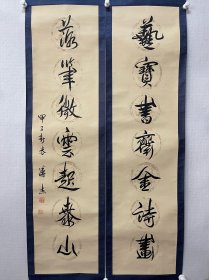 藝寶書齋金詩畫
落筆微雲起泰山
甲子新春 溥杰